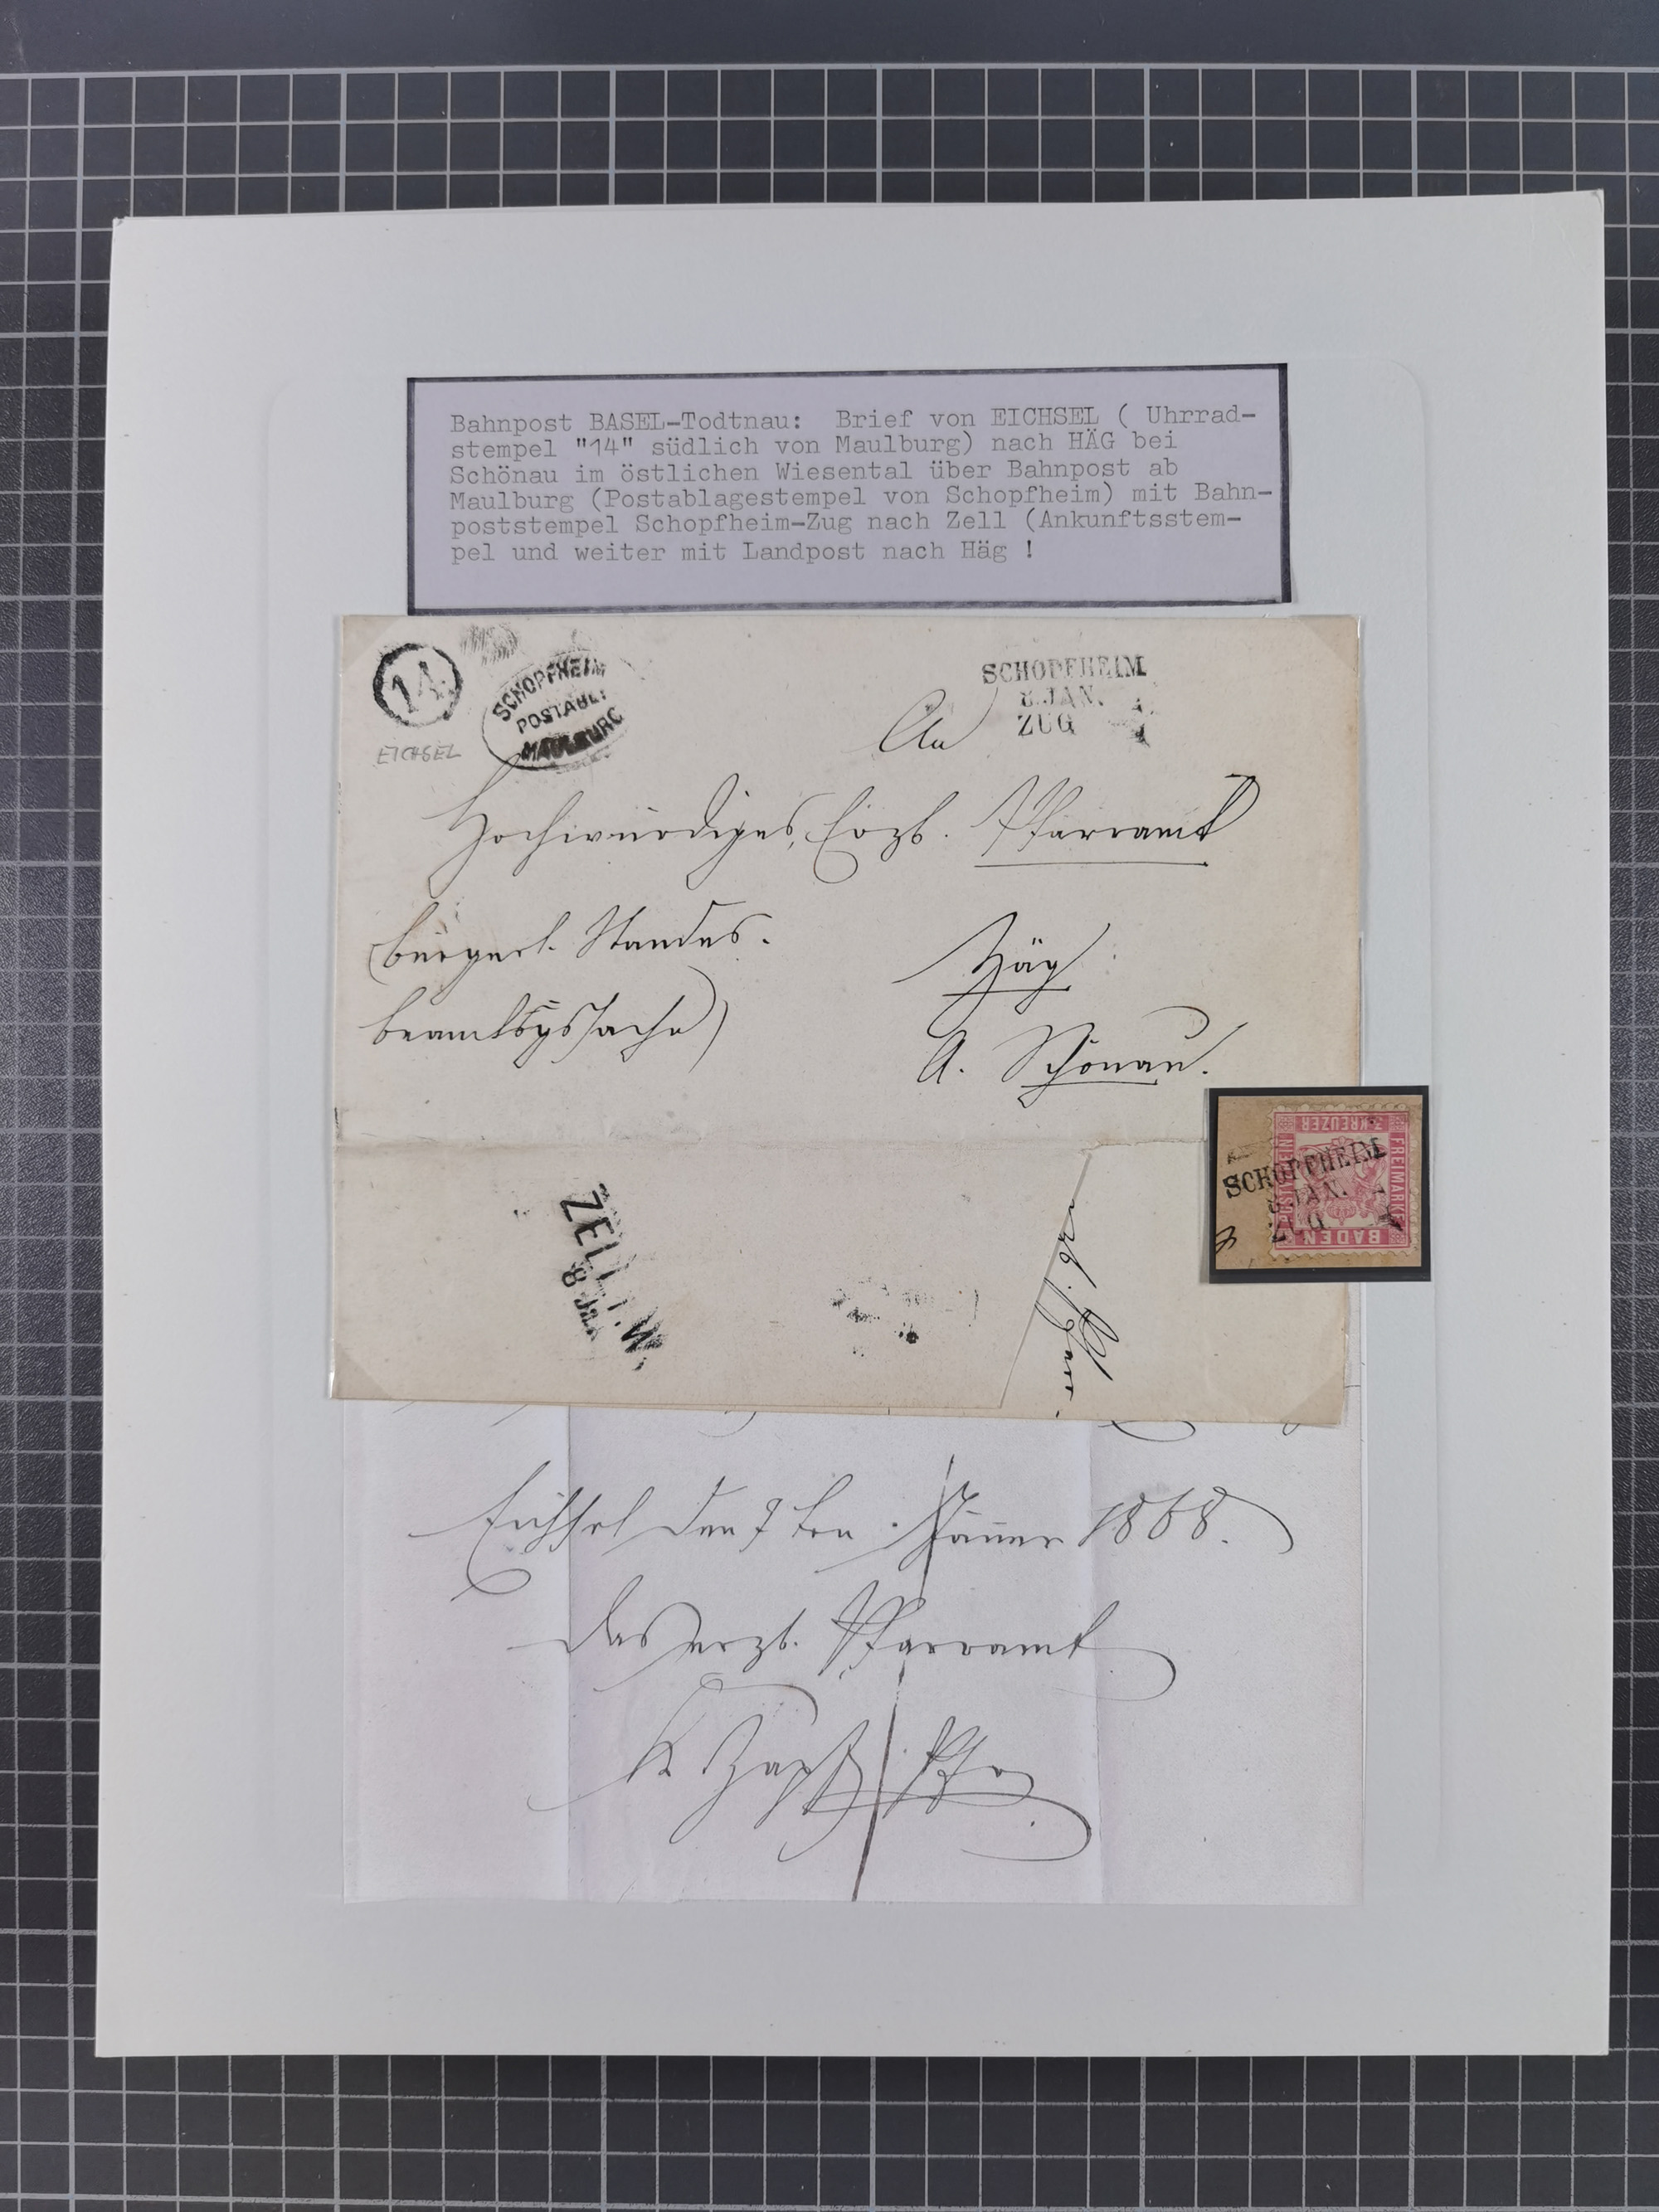 Bahnpost BASEL-Todtnau: Brief von EICHSEL ( Uhrrad-
stempel "14" südlich von Maulburg) nach HÄG bei
Schönau im östlichen Wiesental über Bahnpost ab
Maulburg (Postablagestempel von Schopfheim) mit Bahn-
poststempel Schopfheim-Zug nach Zell (Ankunftsstem-
pel und weiter mit Landpost nach Häg !
14
EICHSEL
SCHOPFHEIM
POSTABL:
MAULBURG
SCHOPFHEIM
8. JAN.
ZUG
An
Hochwürdiges Erzb. Pfarramt
(bürgerl. Standes-
beamtgssache)
Häg
A. Schönau.
ZELL i. W.
8 JAN
SCHOPFHEIM
8 JAN.
3 KREUZER
FREIMARKE
BADEN
POSTVEREIN
Eichsel den 7ten Jänner 1868.
Das erzb. Pfarramt
Zapf Pfr